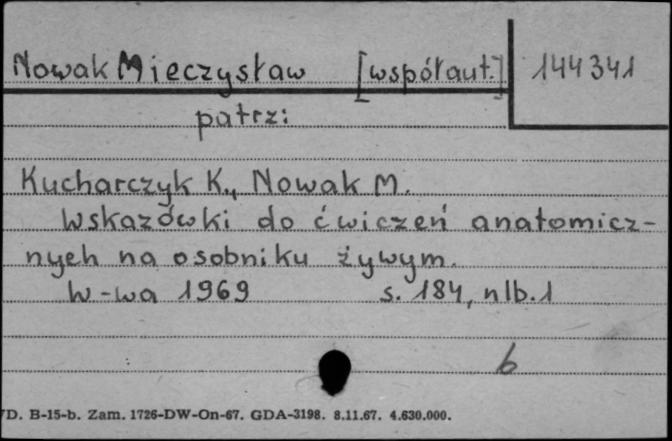 Nowak Mieczysław [współaut.] 144341
patrz:
Kucharczyk K., Nowak M.
Wskazówki do ćwiczeń anatomicz-
nych na osobniku żywym.
W-wa 1969 s. 184, nlb. 1
b
D. B-15-b. Zam. 1726-DW-On-67. GDA-3198. 8.11.67. 4.630.000.